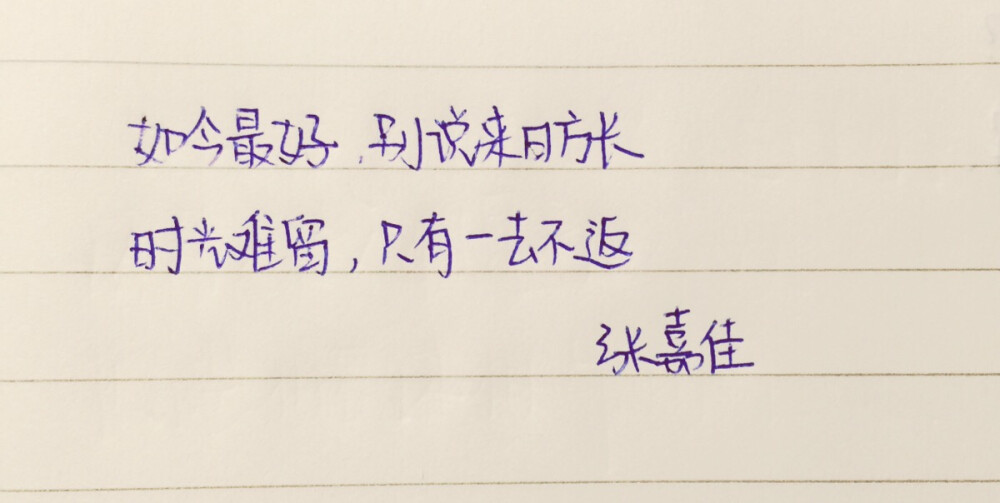 如今最好,别说来日方长
时光难留,只有一去不返
张嘉佳